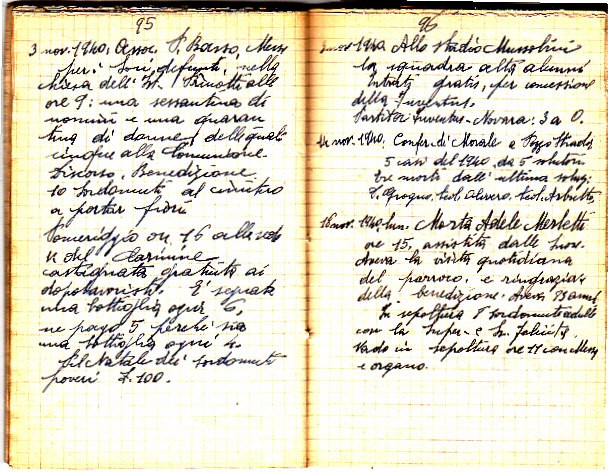 95
3 nov. 1940. Assoc. P. Basso, Messa
per i Soci defunti, nella
chiesa dell' Ist. Prinotti alle
ore 9: una sessantina di
uomini e una quaran
tina di donne, delle quali
cinque alla Comunione.
Discorso. Benedizione.
10 sordomuti al cimitero
a portar fiori.
Pomeriggio ore 16 alla sede
castagnata gratuita ai
dopolavoristi. E' segnata
una bottiglia ogni 6,
ne pago 5, perchè sia
una bottiglia ogni 4.
Pel Natale dei sordomuti
poveri £. 100.
96
3 nov. 1940. Allo stadio Mussolini
la squadra alta alunni
entrati gratis, per concessione
della Juventus.
Partita Juventus-Novara: 3 a 0.
14 nov. 1940. Confer. di Morale a Pozzo Strada
5 casi del 1940, da 5 solutori
tre morti dall' ultima
16 nov. 1940. Morta Adele Merletti
ore 15, assistita dalle Suore.
Aveva la visita quotidiana
del parroco, e ringraziava
della benedizione. Aveva 73 anni.
In sepoltura 8 sordomute adulte
con la Super. e Sr. Felicita.
Vado in sepoltura ore 11 con Messa
e organo.